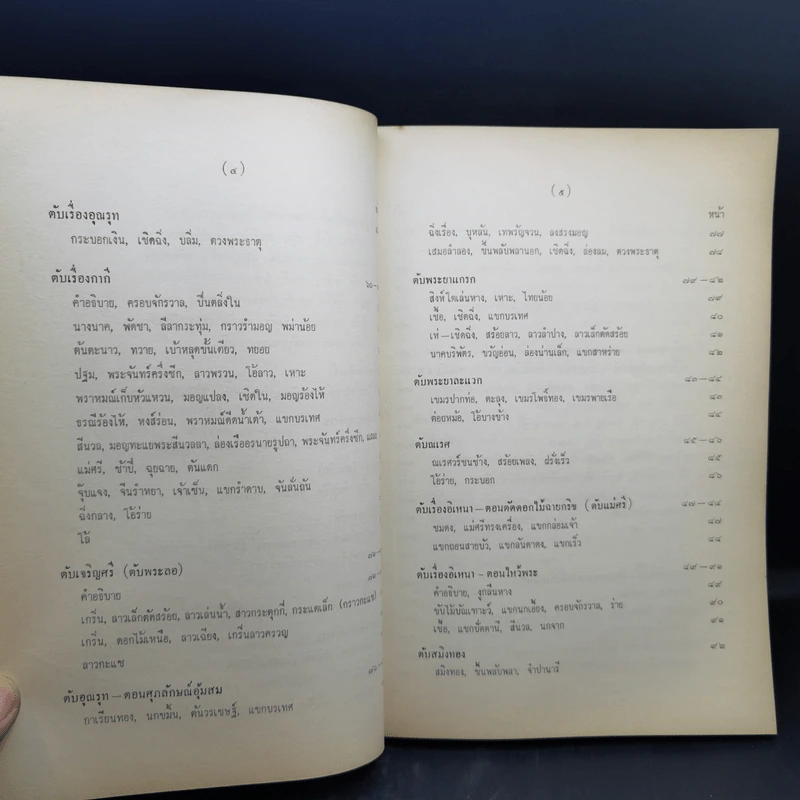 (๔)
ตับเรื่องอุณรุท
กระบอกเงิน, เชิดฉิ่ง, บลิ่ม, ดวงพระธาตุ
ตับเรื่องกากี
๖๐—
คำอธิบาย, ครอบจักรวาล, ปีนตลิ่งใน
นางนาค, พัดชา, ลีลากระทุ่ม, กราวรำมอญ พม่าน้อย
ต้นตะนาว, ทวาย, เบ้าหลุดชั้นเดียว, ทยอย
ปฐม, พระจันทร์ครึ่งซีก, ลาวพรวน, โอ้ลาว, เหาะ
พราหมณ์เก็บหัวแหวน, มอญแปลง, เชิดใน, มอญร้องไห้
ธรณีร้องไห้, หงส์ร่อน, พราหมณ์ดีดน้ำเต้า, แขกบรเทศ
สีนวล, มอญทะแยพระสีนวลลา, ล่องเรืออรนายรูปถา, พระจันทร์ครึ่งซีก,
แม่ศรี, ช้าปี่, ฉุยฉาย, ต้นแดก
จุ๊บแจง, จีนรำหยา, เจ้าเซ็น, แขกรำดาบ, จันลั่นถัน
ฉิ่งกลาง, โอ้ร่าย
โล้
ตับเจริญศรี (ตับพระลอ)
คำอธิบาย
เกริ่น, ลาวเล็กตัดสร้อย, ลาวเล่นน้ำ, สาวกระตุกกี่, กระแตเล็ก (กราวกะแซ)
เกริ่น, ดอกไม้เหนือ, ลาวเฉียง, เกริ่นลาวครวญ
ลาวกะแซ
ตับอุณรุท — ตอนศุภลักษณ์อุ้มสม
กาเรียนทอง, นกขมิ้น, ต้นวรเชษฐ์, แขกบรเทศ
(๕)
หน้า
ฉิ่งเรื่อง, บุหลัน, เทพรัญจวน, ลงสรงมอญ ๗๗
เสมอลำลอง, ขึ้นพลับพลานอก, เชิดฉิ่ง, ล่องลม, ดวงพระธาตุ ๗๘
ตับพระยาแกรก ๗๙—๘๒
สิงห์โตเล่นหาง, เหาะ, ไทยน้อย ๗๙
เชื้อ, เชิดฉิ่ง, แขกบรเทศ ๘๐
เห่—เชิดฉิ่ง, สร้อยลาว, ลาวลำปาง, ลาวเล็กตัดสร้อย ๘๑
นาคบริพัตร, ขวัญอ่อน, ล่องน่านเล็ก, แขกสาหร่าย ๘๒
ตับพระยาละแวก ๘๓—๘๔
เขมรปากท่อ, ตะลุง, เขมรโพธิ์ทอง, เขมรพายเรือ ๘๓
ต่อยหม้อ, โอ้บางช้าง ๘๔
ตับณเรศ ๘๕—๘๖
ณเรศวร์ชนช้าง, สร้อยเพลง, ฝรั่งเร็ว ๘๕
โอ้ร่าย, กระบอก ๘๖
ตับเรื่องอิเหนา — ตอนตัดดอกไม้ฉายกริช (ตับแม่ศรี) ๘๗—๘๘
ชมดง, แม่ศรีทรงเครื่อง, แขกกล่อมเจ้า ๘๗
แขกถอนสายบัว, แขกลันดาตง, แขกเร็ว ๘๘
ตับเรื่องอิเหนา — ตอนไหว้พระ ๘๙—๙๑
คำอธิบาย, งูกลืนหาง ๘๙
ขับไม้บัณเฑาะว์, แขกนกเอี้ยง, ครอบจักรวาล, ร่าย ๙๐
เชื้อ, แขกปัตตานี, สีนวล, นกจาก ๙๑
ตับสมิงทอง ๙๒
สมิงทอง, ขึ้นพลับพลา, จำปานารี